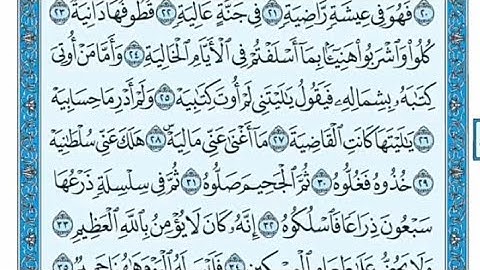 ٢٠ فَهُوَ فِي عِيشَةٍ رَّاضِيَةٍ ٢١ فِي جَنَّةٍ عَالِيَةٍ ٢٢ قُطُوفُهَا دَانِيَةٌ ٢٣
كُلُوا۟ وَٱشْرَبُوا۟ هَنِيٓـًٔۢا بِمَآ أَسْلَفْتُمْ فِي ٱلْأَيَّامِ ٱلْخَالِيَةِ ٢٤ وَأَمَّا مَنْ أُوتِيَ
كِتَٰبَهُۥ بِشِمَالِهِۦ فَيَقُولُ يَٰلَيْتَنِي لَمْ أُوتَ كِتَٰبِيَهْ ٢٥ وَلَمْ أَدْرِ مَا حِسَابِيَهْ
٢٦ يَٰلَيْتَهَا كَانَتِ ٱلْقَاضِيَةَ ٢٧ مَآ أَغْنَىٰ عَنِّي مَالِيَهْۜ ٢٨ هَلَكَ عَنِّي سُلْطَٰنِيَهْ
٢٩ خُذُوهُ فَغُلُّوهُ ٣٠ ثُمَّ ٱلْجَحِيمَ صَلُّوهُ ٣١ ثُمَّ فِي سِلْسِلَةٍ ذَرْعُهَا
سَبْعُونَ ذِرَاعًا فَٱسْلُكُوهُ ٣٢ إِنَّهُۥ كَانَ لَا يُؤْمِنُ بِٱللَّهِ ٱلْعَظِيمِ ٣٣
وَلَا يَحُضُّ عَلَىٰ طَعَامِ ٱلْمِسْكِينِ ٣٤ فَلَيْسَ لَهُ ٱلْيَوْمَ هَٰهُنَا حَمِيمٌ ٣٥